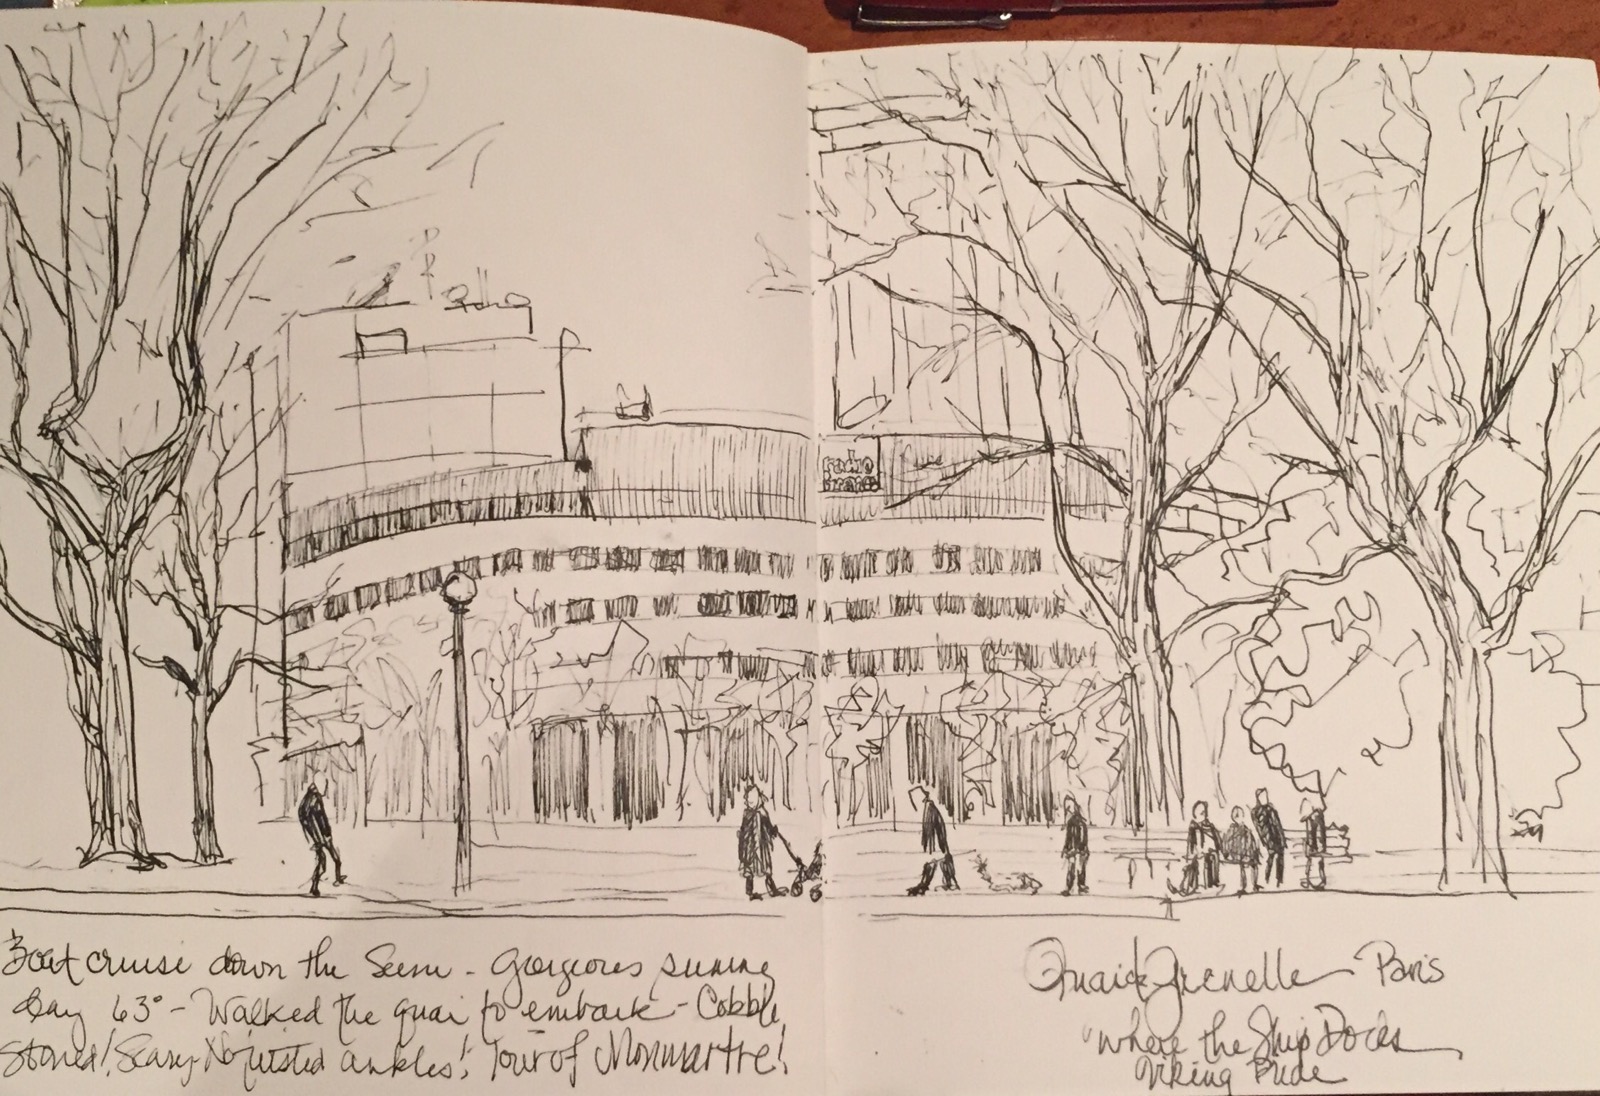 radio
france!
Boat cruise down the Seine - Gorgeous sunny
day 63° - Walked the quai to embark - Cobble
Stoned! Scary - No twisted ankles! Tour of Monmartre!
Quai de Grenelle - Paris
"where the Ship Docks
Viking Pride